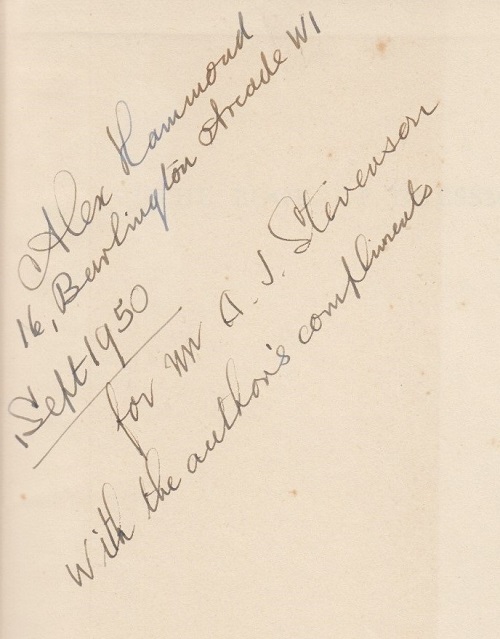 Alex Hammond
16, Burlington Arcade W1
Sept 1950
for Mr A. J. Stevenson
with the author's compliments